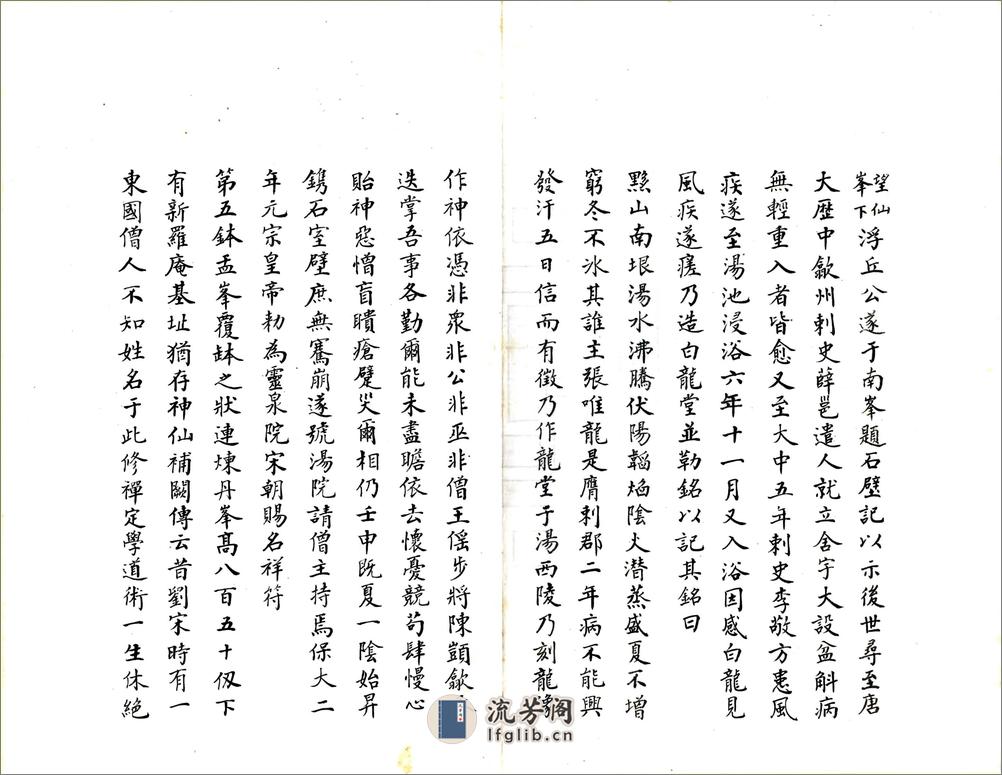 望仙峯下浮丘公遂于南峯題石壁記以示後世尋至唐
大歷中歙州刺史薛邕遣人就立舍宇大設盆斛病
無輕重入者皆愈又至大中五年刺史李敬方患風
疾遂至湯池浸浴六年十一月又入浴因感白龍見
風疾遂瘥乃造白龍堂並勒銘以記其銘曰
黟山南垠湯水沸騰伏陽韜焰陰火潛蒸盛夏不增
窮冬不冰其誰主張唯龍是膺刺郡二年病不能興
發汗五日信而有徵乃作龍堂于湯西陵乃刻龍像
作神依憑非衆非公非巫非僧王傜步將陳顗歙
迭掌吾事各勤爾能未盡瞻依去懷憂競苟肆慢心
貽神惡憎盲聵瘡躄災爾相仍壬申既夏一陰始昇
鐫石室壁庶無騫崩遂號湯院請僧主持焉保大二
年元宗皇帝勅為靈泉院宋朝賜名祥符
第五鉢盂峯覆鉢之狀連煉丹峯髙八百五十仭下
有新羅庵基址猶存神仙補闕傳云昔劉宋時有一
東國僧人不知姓名于此修禪定學道術一生休絶
流芳阁
lfglib.cn